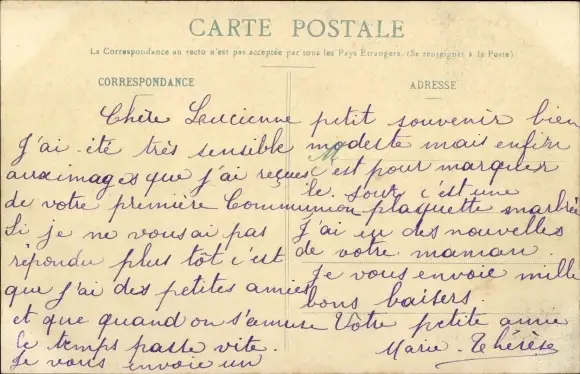 CARTE POSTALE
La Correspondance au recto n'est pas acceptée par tous les Pays Etrangers. (Se renseigner à la Poste)
CORRESPONDANCE
ADRESSE
Chère Lucienne
J'ai été très sensible
aux images que j'ai reçues
de votre première Communion
Si je ne vous ai pas
répondu plus tôt c'est
que j'ai des petites amies
et que quand on s'amuse
le temps passe vite.
Je vous envoie un
petit souvenir bien
modeste mais enfin
c'est pour marquer
le jour c'est une
plaquette marbrée
J'ai eu des nouvelles
de votre maman.
Je vous envoie mille
bons baisers.
Vôtre petite amie
Marie-Thérèse